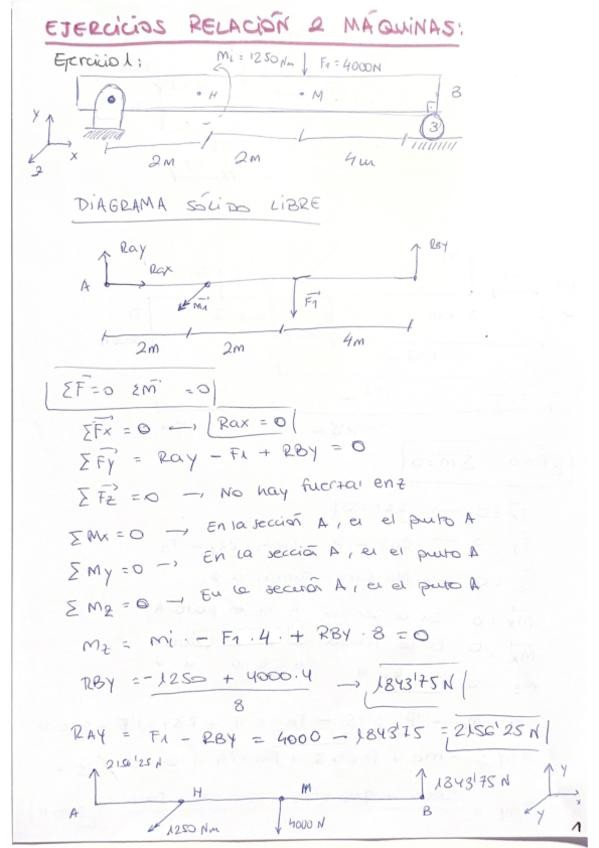 EJERCICIOS RELACIÓN 2 MÁQUINAS:
Ejercicio 1:
Mi = 1250 Nm
F1 = 4000N
H
M
B
3
Y
X
Z
2m
2m
4m
DIAGRAMA SÓLIDO LIBRE
Ray
RBy
Rax
A
M1
F1
2m
2m
4m
ΣF=0 ΣM =0
ΣFx = 0 → Rax = 0
ΣFy = Ray - F1 + RBY = 0
ΣFz = 0 → No hay fuerzas en z
ΣMx = 0 → En la sección A, es el punto A
ΣMy = 0 → En la sección A, es el punto A
ΣMz = 0 → En la sección A, es el punto A
Mz = Mi - F1 · 4 + RBY · 8 = 0
RBY = -1250 + 4000·4 / 8 → 1843'75 N
RAY = F1 - RBY = 4000 - 1843'75 = 2156'25 N
2156'25 N
H
M
1843'75 N
Y
x
A
B
1250 Nm
4000 N
y
1